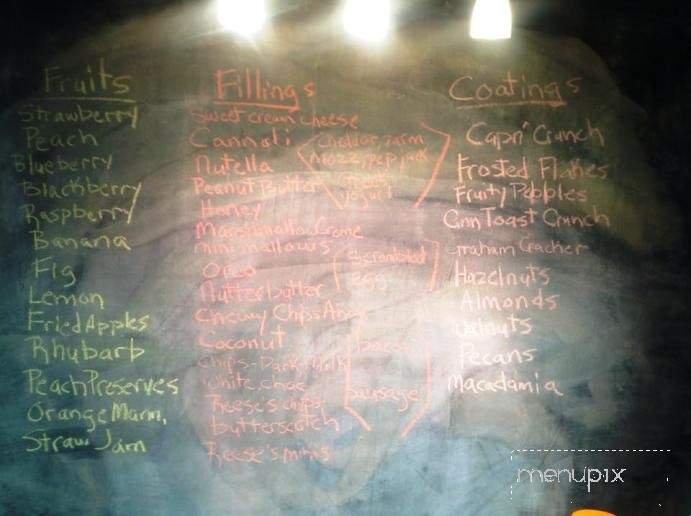 Fruits
Strawberry
Peach
Blueberry
Blackberry
Raspberry
Banana
Fig
Lemon
Fried Apples
Rhubarb
Peach Preserves
Orange Marm,
Straw Jam
Fillings
Sweet cream cheese
Cannoli
Nutella
Peanut Butter
Honey
Marshmallow Creme
mini mallows
Oreo
Nutter butter
Chewy Chips Ahoy
Coconut
Chips-Dark, Milk
White choc
Reese's chips
butterscotch
Reese's minis
Cheddar, Parm
Mozz, Pep jack
Greek
yogurt
Scrambled
egg
bacon
sausage
Coatings
Capri Crunch
Frosted Flakes
Fruity Pebbles
Cinn Toast Crunch
Graham Cracker
Hazelnuts
Almonds
Walnuts
Pecans
Macadamia
menupix